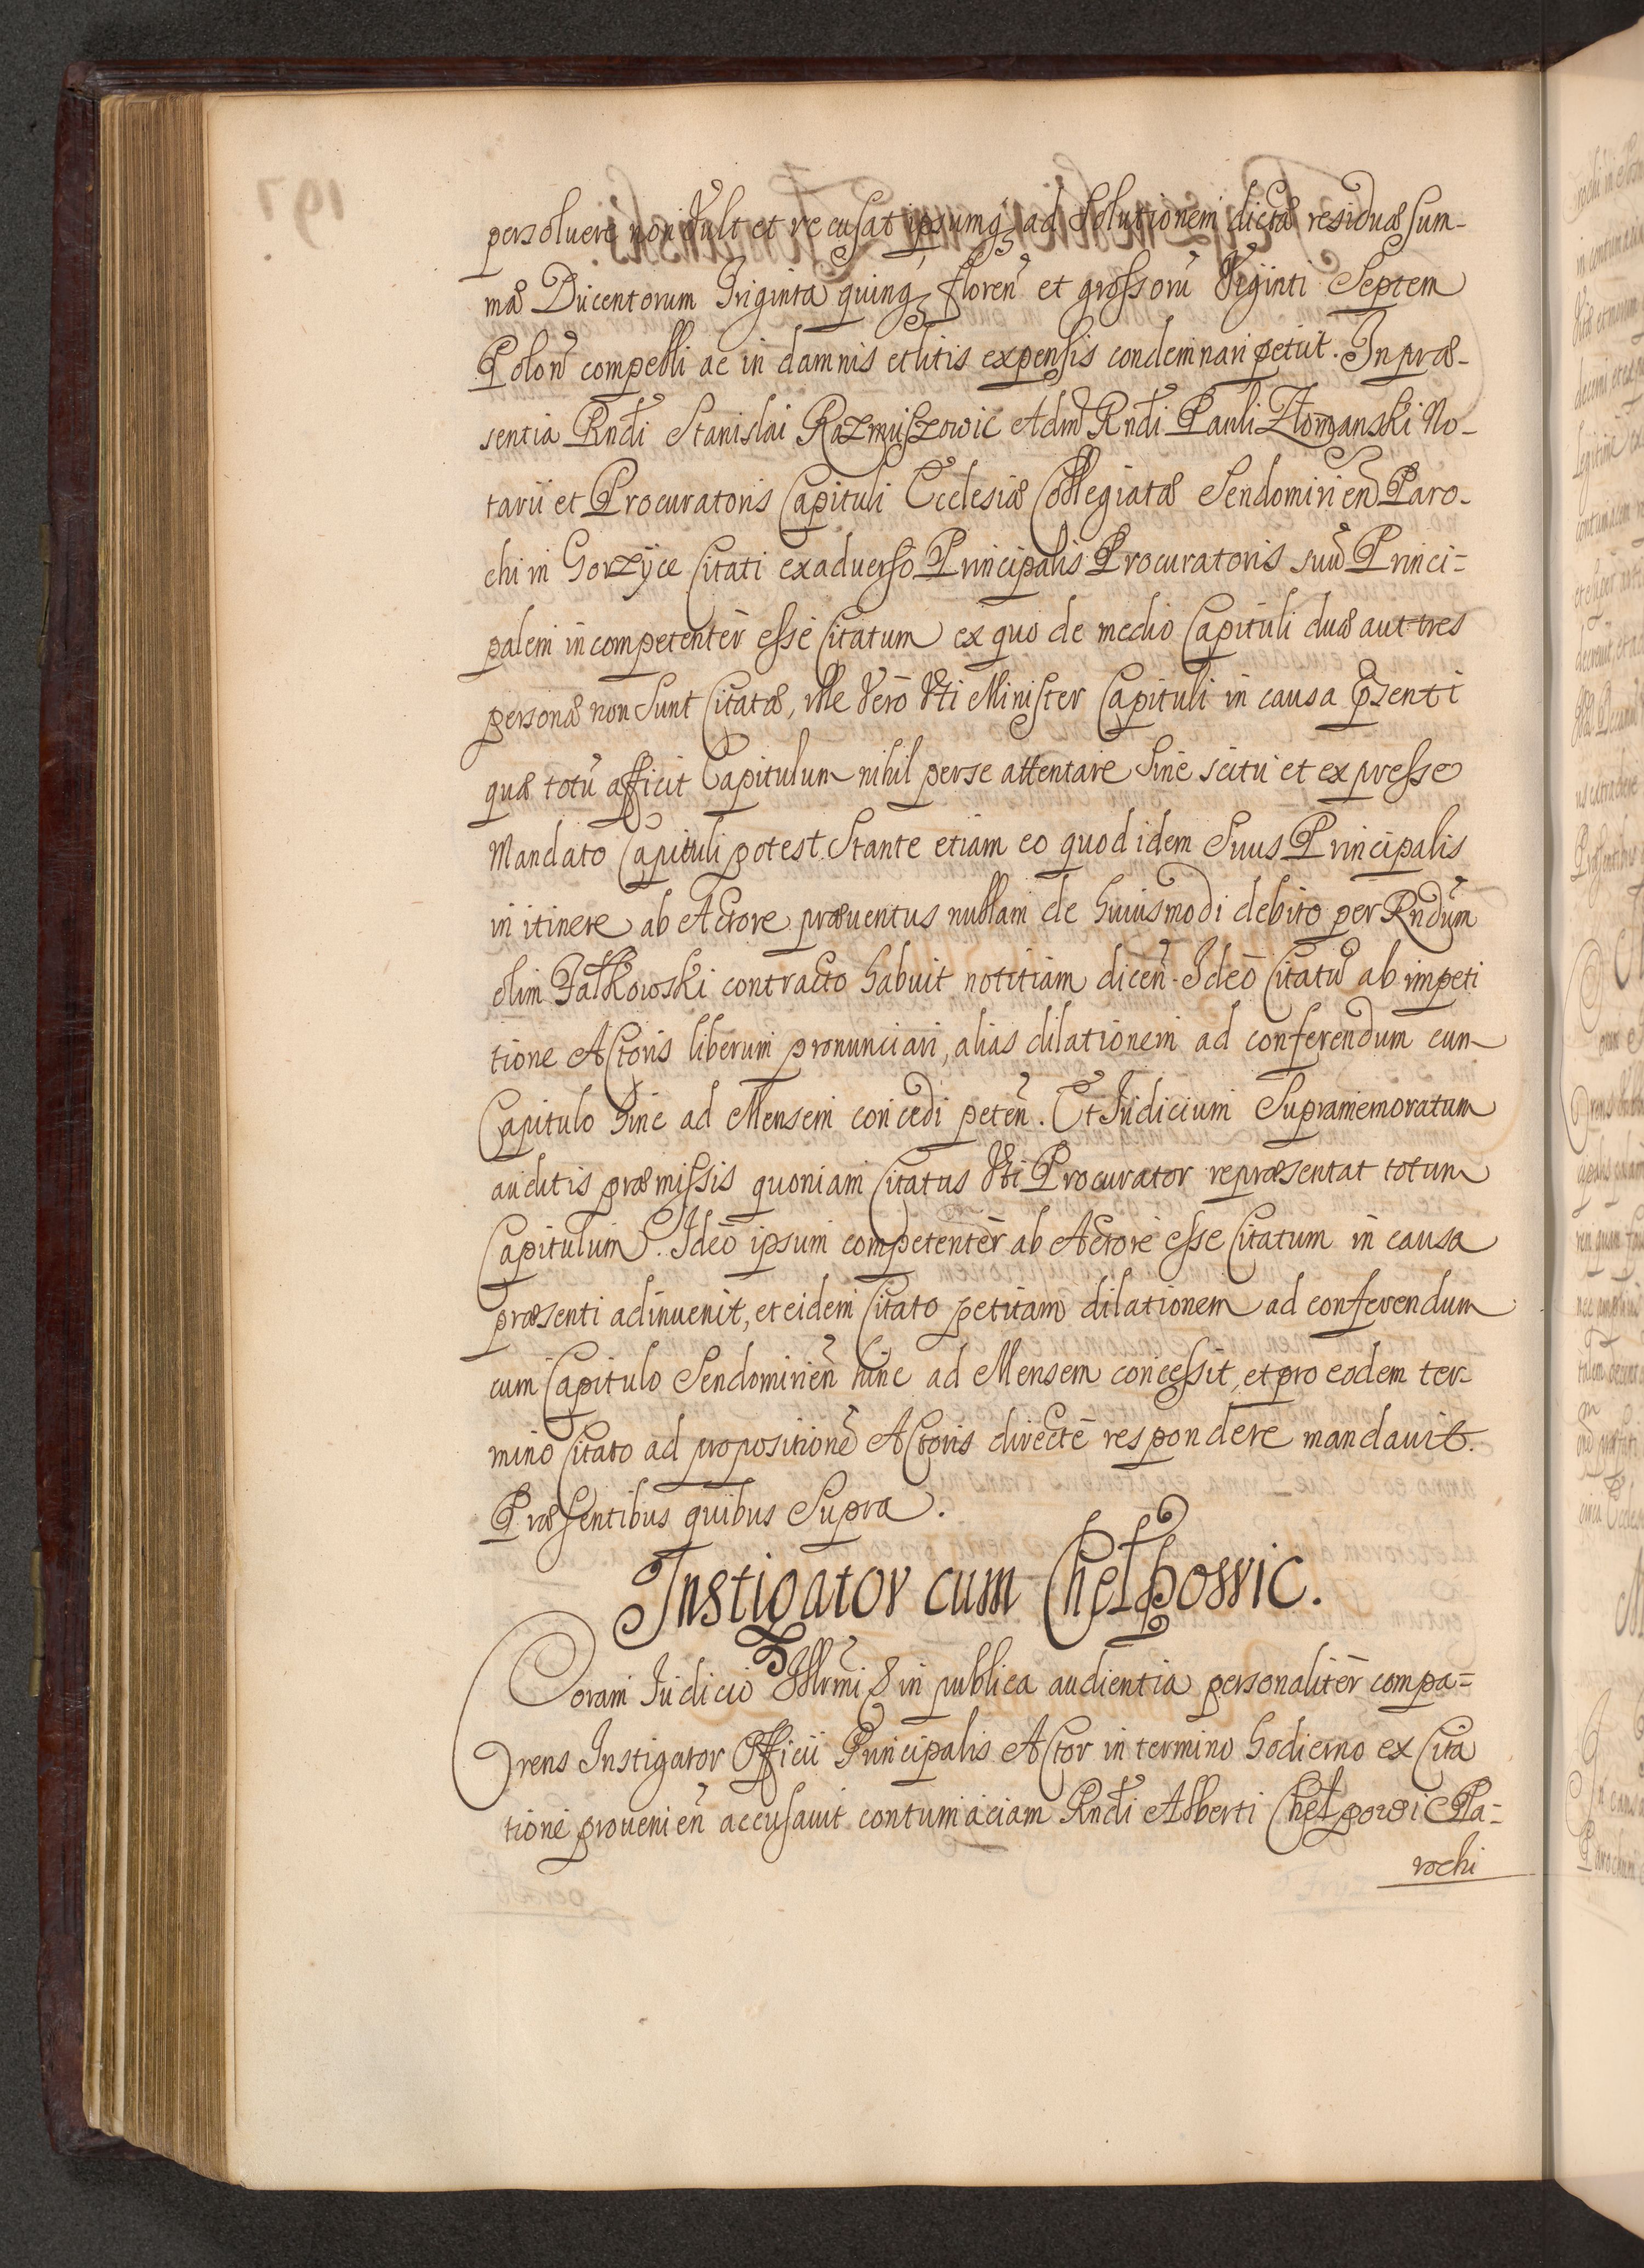 persoluere non vult et recusat ipsumq3 ad Solutionem dictæ residuæ Sum-
mæ Ducentorum Triginta quinq3 floren̄ et grossorū Viginti Septem
Polon̄ compelli ac in damnis et litis expensis condemnari petiit. In præ-
sentia Rndi Stanislai Razmuszowic Adm̄ Rndi Pauli Złomanski No-
tarii et Procuratoris Capituli Ecclesiæ Collegiatæ Sendomirien̄ Paro-
chi in Gorzyce Citati ex aduerso Principalis Procuratoris suū Princi=
palem incompetenter esse Citatum ex quo de medio Capituli duæ aut tres
personæ non Sunt Citatæ, ille Vero Vti Minister Capituli in causa p̄senti
quæ totū afficit Capitulum nihil per se attentare Sine scitu et expresso
Mandato Capituli potest. Stante etiam eo quod idem Suus Principalis
in itinere ab Actore præuentus nullam de huiusmodi debito per Rndum
olim Fałkowski contracto habuit notitiam dicen̄. Ideo Citatū ab impeti
tione Actoris liberum pronunciari, alias dilationem ad conferendum cum
Capitulo hinc ad Mensem concedi peten̄. Et Iudicium Supramemoratum
auditis præmissis quoniam Citatus Vti Procurator repræsentat totum
Capitulum. Ideo ipsum competenter ab Actore esse Citatum in causa
præsenti adinuenit, et eidem Citato petitam dilationem ad conferendum
cum Capitulo Sendomirien̄ hinc ad Mensem concessit, et pro eodem ter-
mino Citato ad propositionē Actoris directe respondere mandauit.
Præsentibus quibus Supra.
Instigator cum Chełpowic.
Coram Iudicio Illrmi & in publica audientia personaliter compa=
rens Instigator Officii Principalis Actor in termino hodierno ex Cita
tione prouenien̄ accusauit contumaciam Rndi Alberti Chełpowic Pa=
rochi